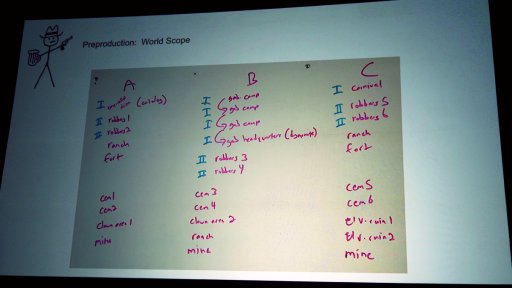 Preproduction: World Scope
A
I (catalog)
II robbers 1
II robbers 2
ranch
fort
cem 1
cem 2
clown area 1
mine
B
I gob camp
I gob camp
I gob camp
I gob headquarters
II robbers 3
II robbers 4
cem 3
cem 4
clown area 2
ranch
mine
C
I carnival
II robbers 5
II robbers 6
ranch
fort
cem 5
cem 6
el v. ruin 1
el v. ruin 2
mine